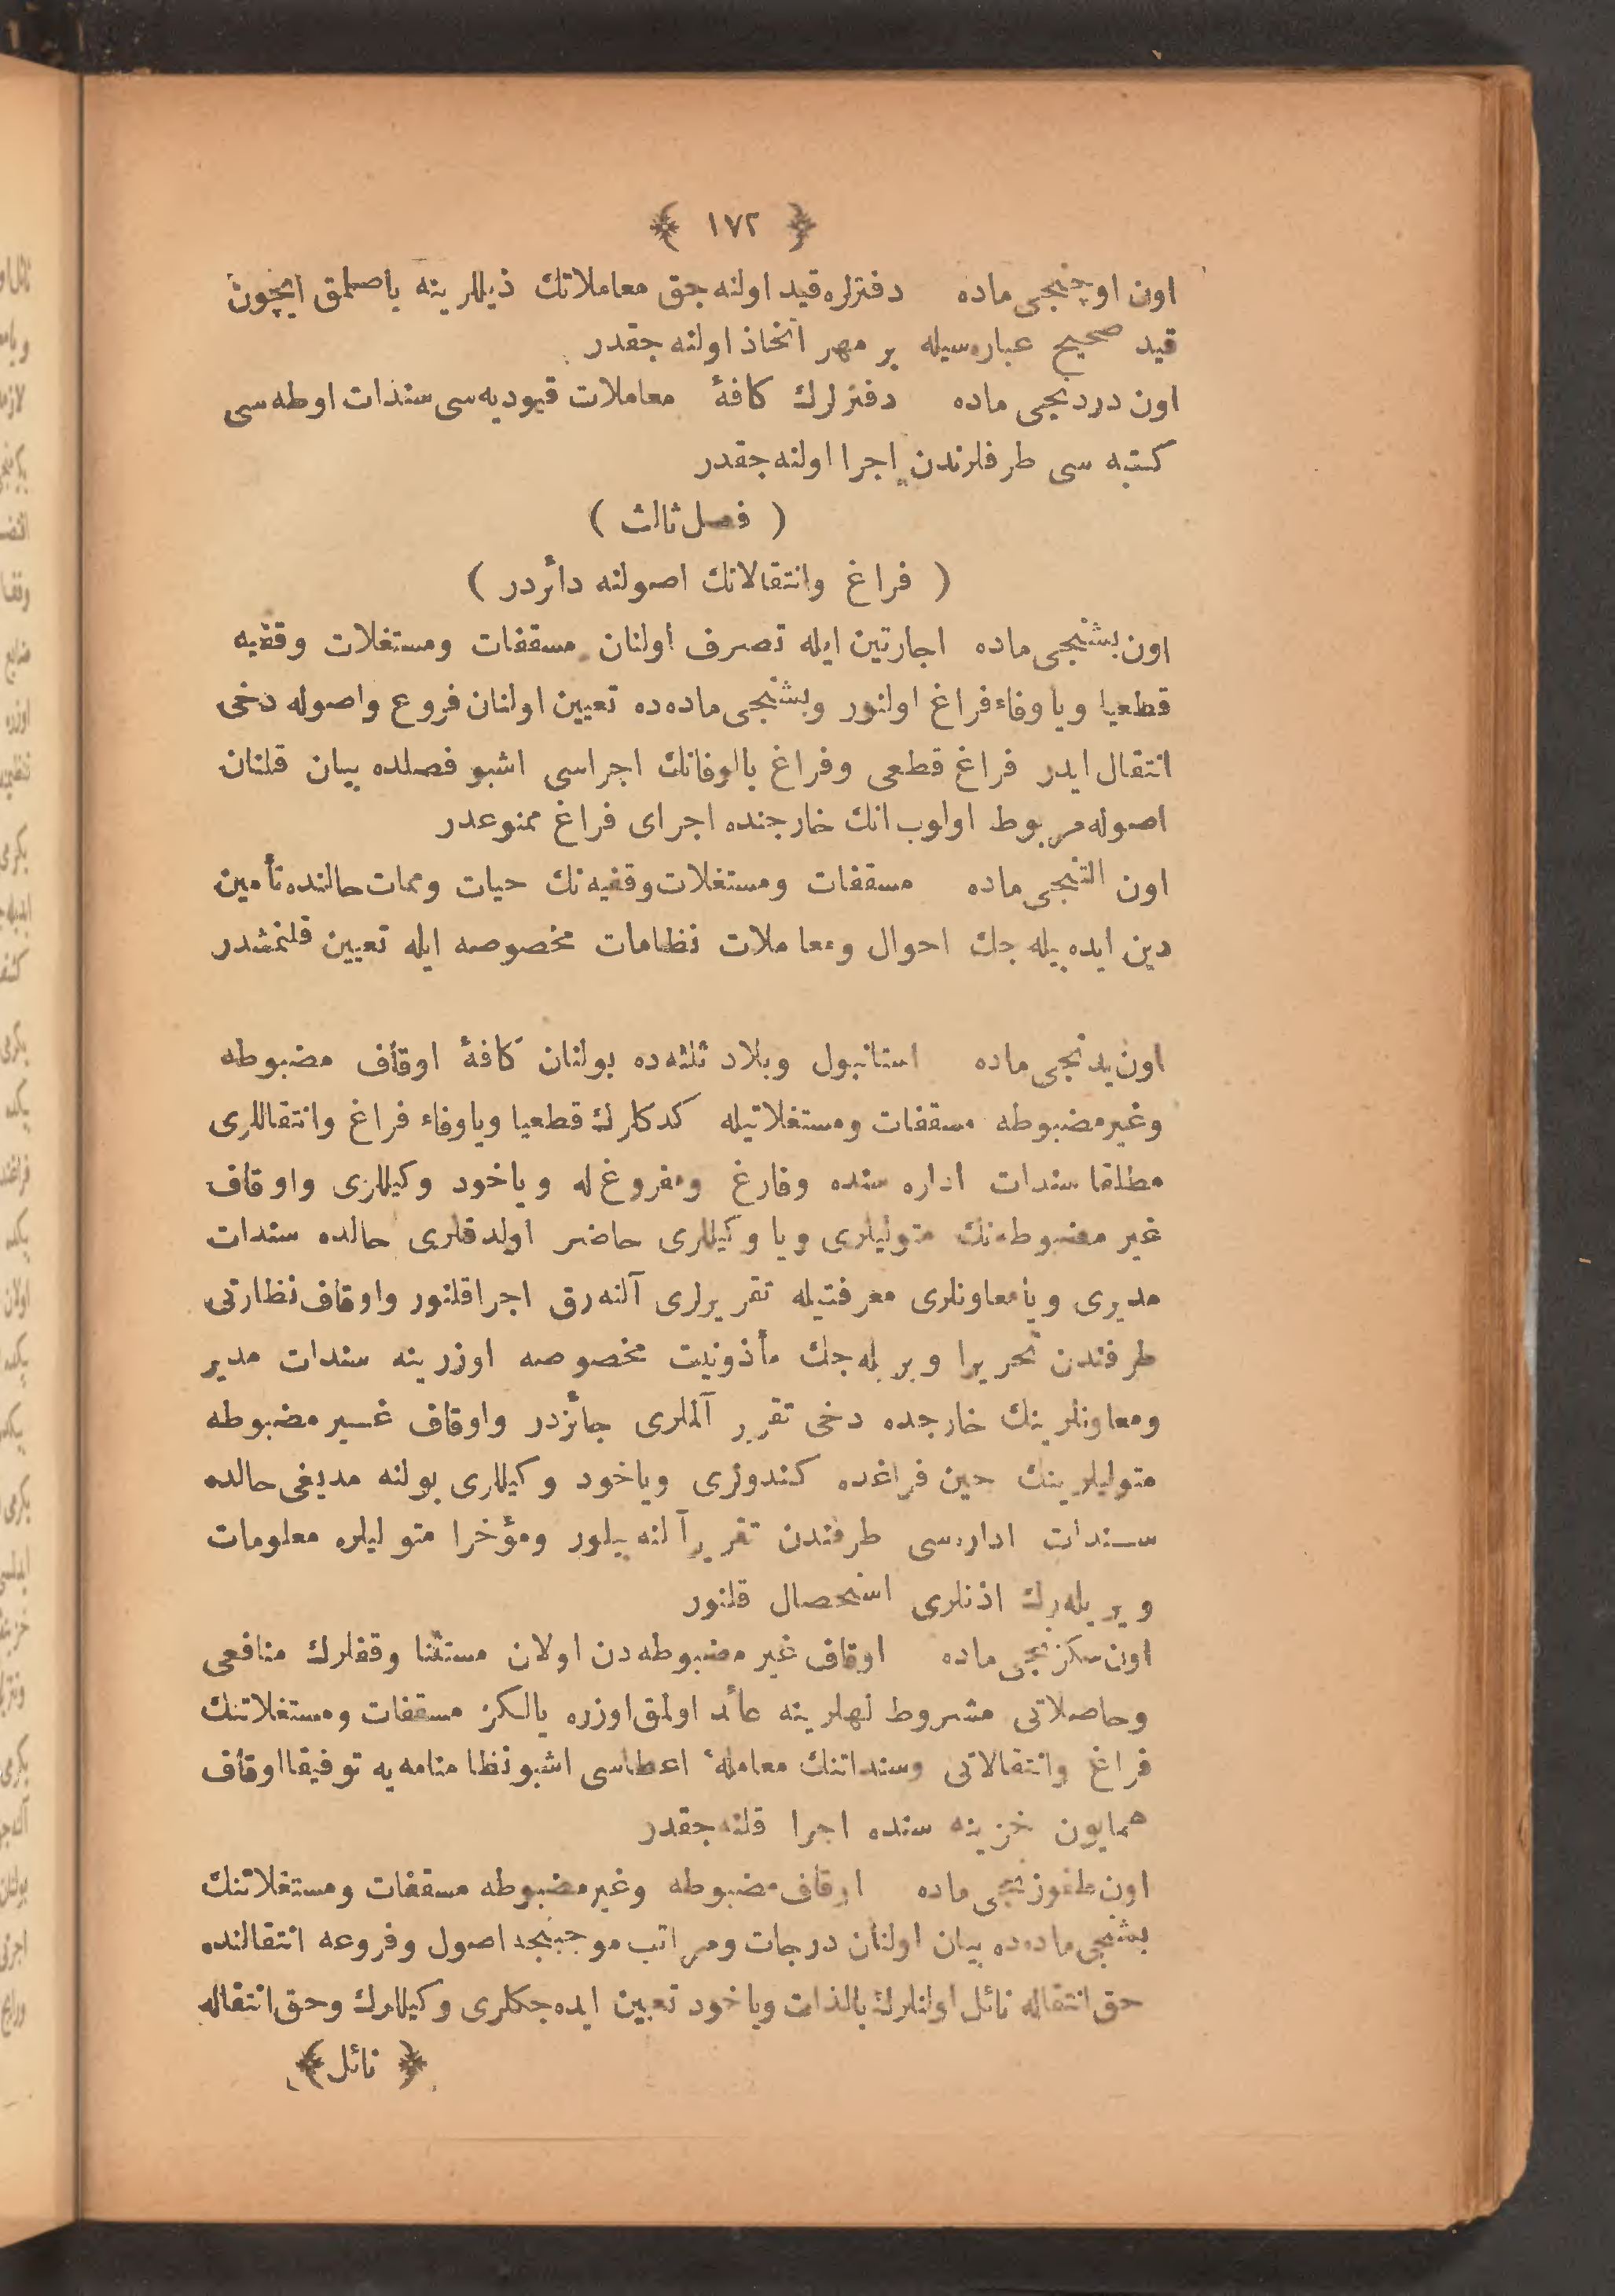 ﴿ ١٧٢ ﴾
اون اوچنجى ماده دفترلره قيد اولنه جق معاملاتك ذيللرينه باصلمق ايچون
قيد صحيح عباره‌سيله بر مهر اتخاذ اولنه جقدر
اون دردنجى ماده دفترلرك كافهٔ معاملات قيوديه‌سى سندات اوطه‌سى
كتبه سى طرفلرندن اجرا اولنه جقدر
( فصل ثالث )
( فراغ وانتقالاتك اصولنه دائردر )
اون بشنجى ماده اجارتين ايله تصرف اولنان مسقفات ومستغلات وقفيه
قطعيا وياوفاء فراغ اولنور وبشنجى ماده‌ده تعيين اولنان فروع واصوله دخى
انتقال ايدر فراغ قطعى وفراغ بالوفانك اجراسى اشبو فصلده بيان قلنان
اصوله مربوط اولوب انك خارجنده اجراى فراغ ممنوعدر
اون التنجى ماده مسقفات ومستغلات وقفيه‌نك حيات وممات حالنده تأمين
دين ايده بيله جك احوال ومعاملات نظامات مخصوصه ايله تعيين قلنمشدر
اون يدنجى ماده استانبول وبلاد ثلثه‌ده بولنان كافهٔ اوقاف مضبوطه
وغيرمضبوطه مسقفات ومستغلاتيله كدكلرك قطعيا وياوفاء فراغ وانتقاللرى
مطلقا سندات اداره سنده وفارغ ومفروغ له وياخود وكيللرى واوقاف
غير مضبوطه‌نك متوليلرى ويا وكيللرى حاضر اولدقلرى حالده سندات
مديرى ويامعاونلرى معرفتيله تقريرلرى آلنه‌رق اجراقلنور واوقاف نظارتى
طرفندن تحريرا ويريله‌جك مأذونيت مخصوصه اوزرينه سندات مدير
ومعاونلرينك خارجده دخى تقرير آلملرى جائزدر واوقاف غير مضبوطه
متوليلرينك حين فراغده كندولرى وياخود وكيللرى بولنه مديغى حالده
سندات اداره‌سى طرفندن تقرير آلنه بيلور ومؤخرا متوليلره معلومات
ويريله‌رك اذنلرى استحصال قلنور
اون سكزنجى ماده اوقاف غير مضبوطه‌دن اولان مستثنا وقفلرك منافعى
وحاصلاتى مشروط لهلرينه عائد اولمق اوزره يالكز مسقفات ومستغلاتنك
فراغ وانتقالاتى وسنداتنك معاملهٔ اعطاسى اشبونظامنامه‌يه توفيقا اوقاف
همايون خزينه سنده اجرا قلنه جقدر
اون طقوزنجى ماده اوقاف مضبوطه وغيرمضبوطه مسقفات ومستغلاتنك
بشنجى ماده‌ده بيان اولنان درجات ومراتب موجبنجه اصول وفروعه انتقالنده
حق انتقاله نائل اولنلرك بالذات وياخود تعيين ايده‌جكلرى وكيللرك وحق انتقاله
﴿ نائل ﴾